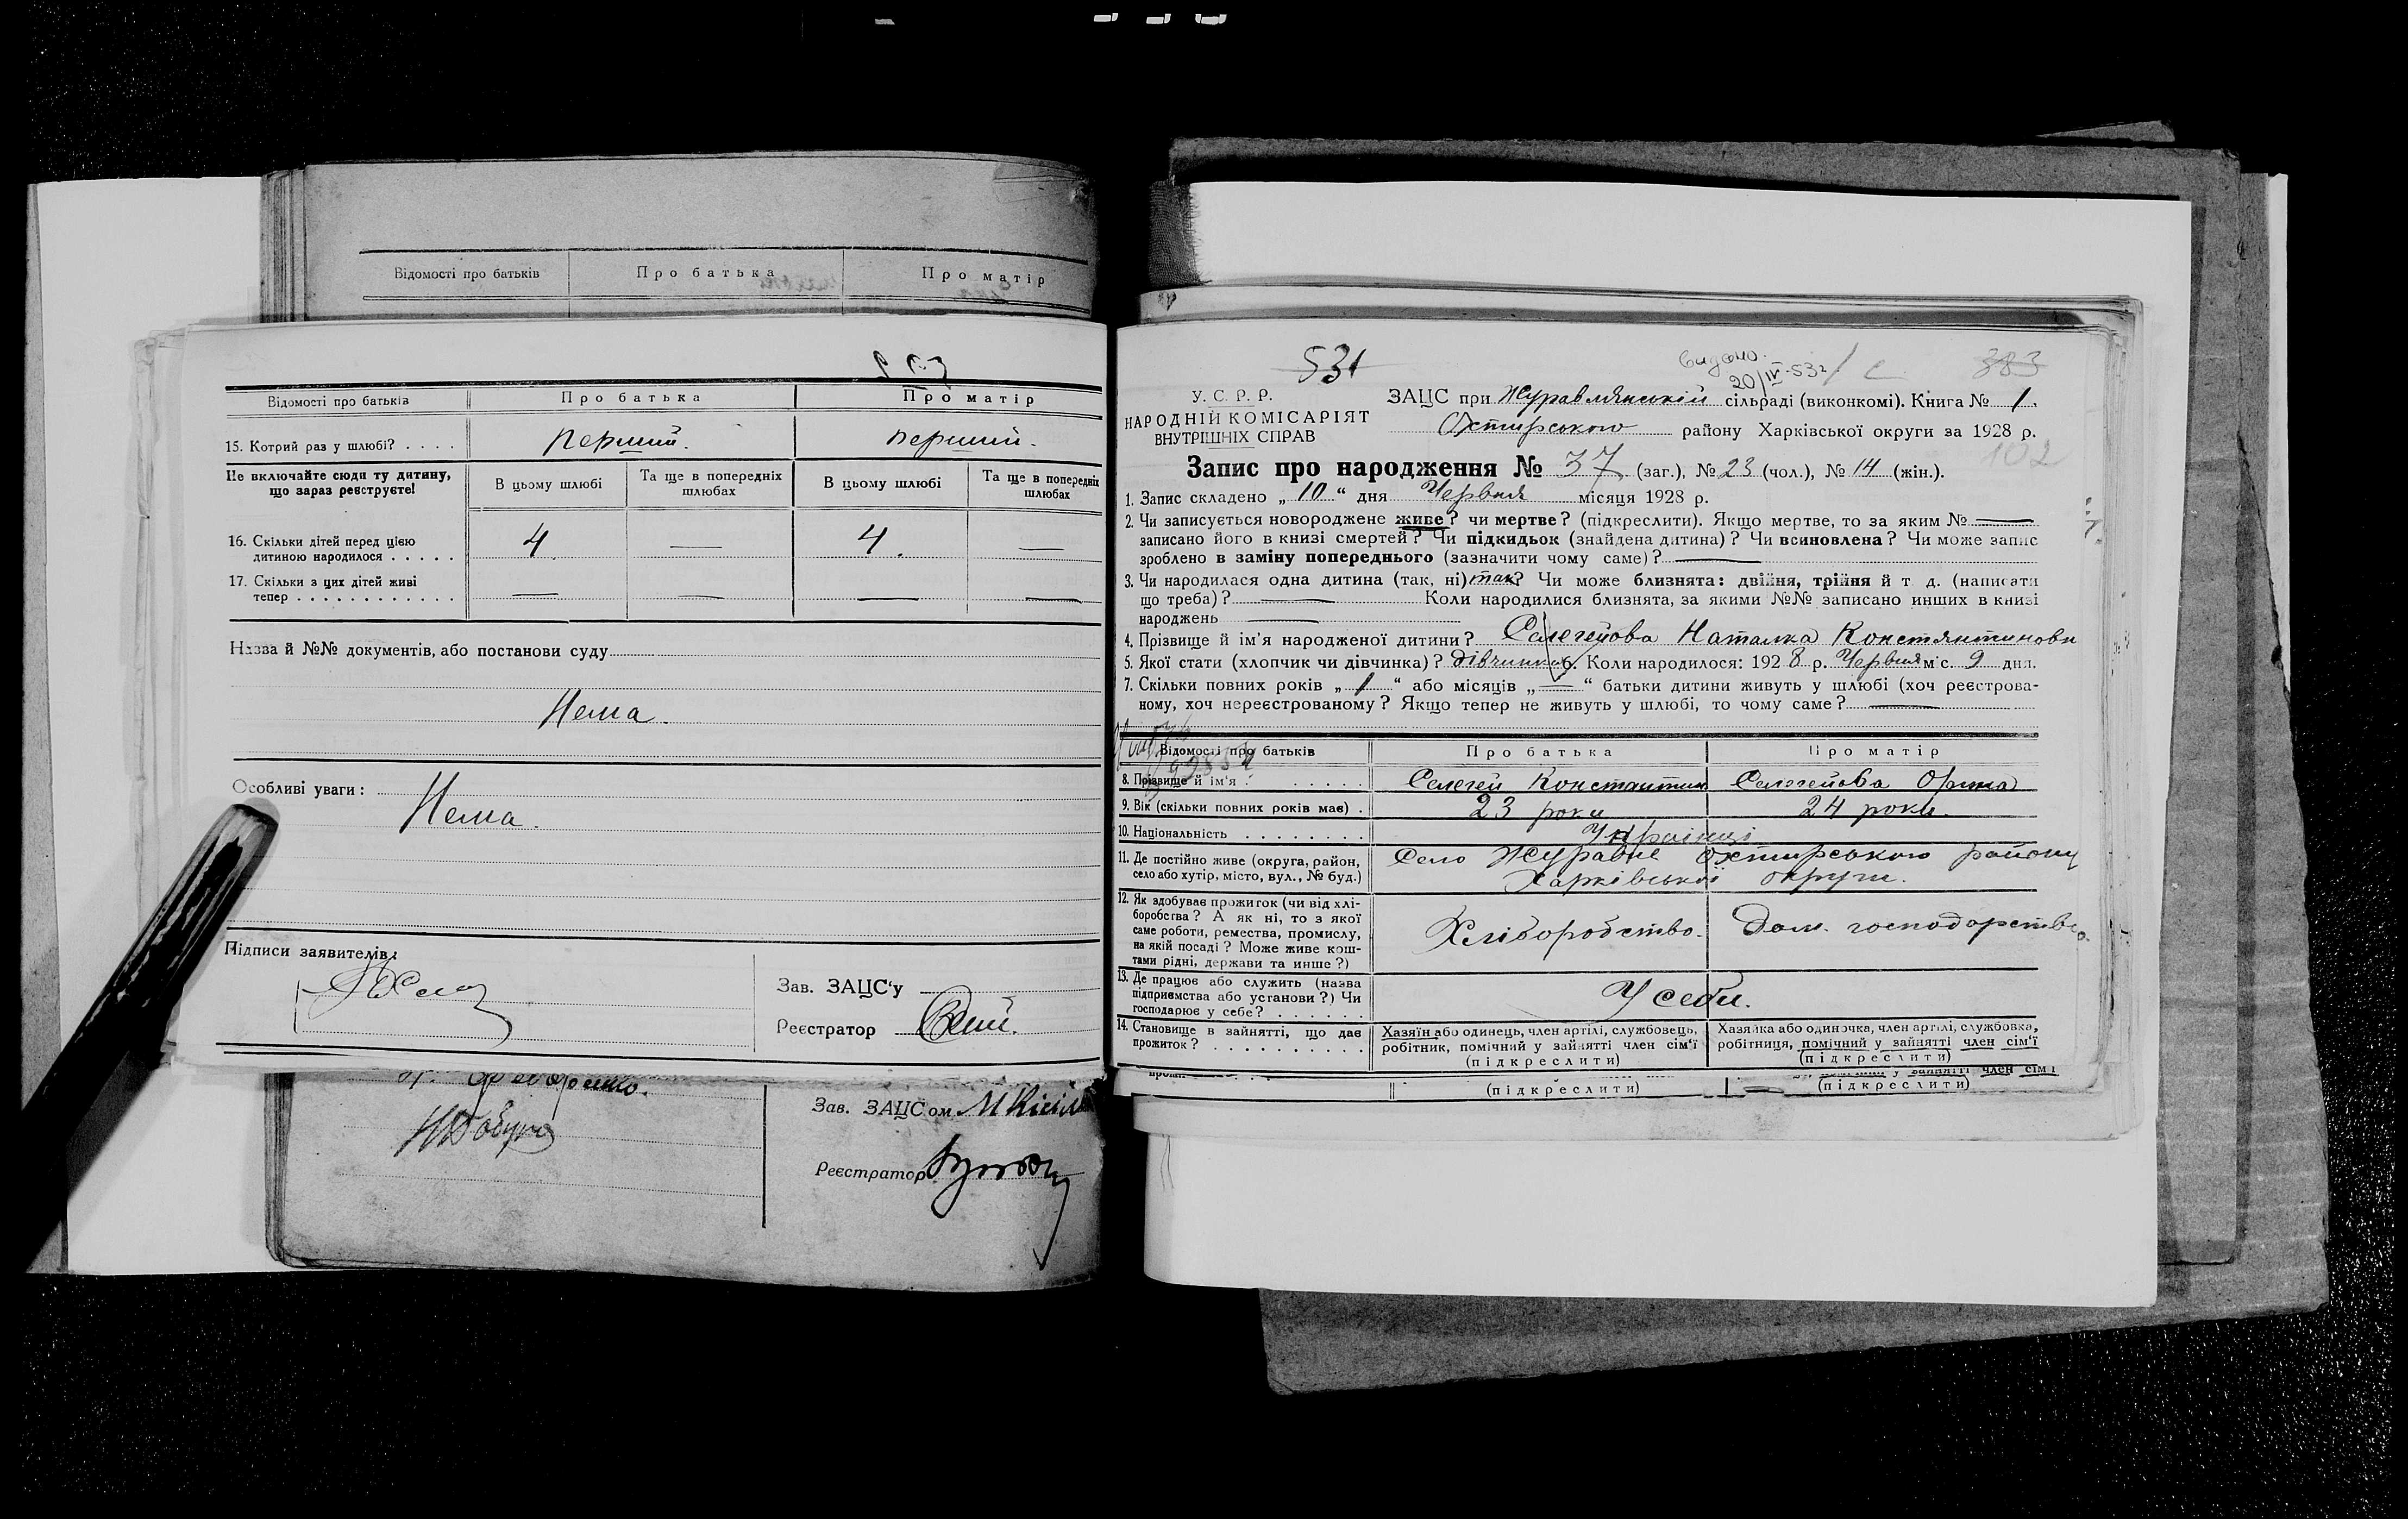 Відомості про батьків Про батька Про матір
Відомості про батьків Про батька Про матір
15. Котрий раз у шлюбі? . . . . Перший. перший.
Не включайте сюди ту дитину, що зараз реєструєте!
В цьому шлюбі
Та ще в попередніх шлюбах
В цьому шлюбі
Та ще в попередніх шлюбах
16. Скільки дітей перед цією
дитиною народилося . . . . . 4. — 4. —
17. Скільки з цих дітей живі
тепер . . . . . . . . . . . . — — — —
Назва й №№ документів, або постанови суду
Нема.
Особливі уваги:
Нема.
Підписи заявителів:
Зав. ЗАЦС'у
Реєстратор
Зав. ЗАЦСом
Реєстратор
531
Видано.
20/IV-53
383
У. С. Р. Р.
НАРОДНІЙ КОМІСАРІЯТ
ВНУТРІШНІХ СПРАВ
ЗАЦС при Журавлянській сільраді (виконкомі). Книга № 1.
Охтирського району Харківської округи за 1928 р.
102
Запис про народження № 37 (заг.), № 23 (чол.), № 14 (жін.).
1. Запис складено „10" дня Червня місяця 1928 р.
2. Чи записується новороджене живе? чи мертве? (підкреслити). Якщо мертве, то за яким № —
записано його в книзі смертей? Чи підкидьок (знайдена дитина)? Чи всиновлена? Чи може запис
зроблено в заміну попереднього (зазначити чому саме)? —
3. Чи народилася одна дитина (так, ні) так? Чи може близнята: двійня, трійня й т. д. (написати
що треба)? — Коли народилися близнята, за якими №№ записано инших в книзі
народжень —
4. Прізвище й ім'я народженої дитини? Селегейова Наталка Константиновн
5. Якої стати (хлопчик чи дівчинка)? дівчинка. Коли народилося: 1928 р. Червня міс. 9 дня.
7. Скільки повних років „1" або місяців „—" батьки дитини живуть у шлюбі (хоч реєстрова-
ному, хоч нереєстрованому? Якщо тепер не живуть у шлюбі, то чому саме? —
Відомості про батьків Про батька Про матір
8. Прізвище й ім'я . . . . . . Селегей Константин Селегейова
9. Вік (скільки повних років має) . 23 роки 24 роки.
10. Національність . . . . . . . . Українці
11. Де постійно живе (округа, район,
село або хутір, місто, вул., № буд.)
Село Журавне Охтирського району
Харківської округи.
12. Як здобуває прожиток (чи від хлі-
боробства? А як ні, то з якої
саме роботи, ремества, промислу,
на якій посаді? Може живе кош-
тами рідні, держави та инше?)
Хліборобство. Дом. господарство.
13. Де працює або служить (назва
підприємства або установи?) Чи
господарює у себе? . . . . . .
У себе.
14. Становище в зайнятті, що дає
прожиток? . . . . . . . . . .
Хазяїн або одинець, член артілі, службовець,
робітник, помічний у зайнятті член сім'ї
(підкреслити)
Хазяйка або одиночка, член артілі, службовка,
робітниця, помічний у зайнятті член сім'ї
(підкреслити)
у зайнятті член сім'ї
(підкреслити) (підкреслити)